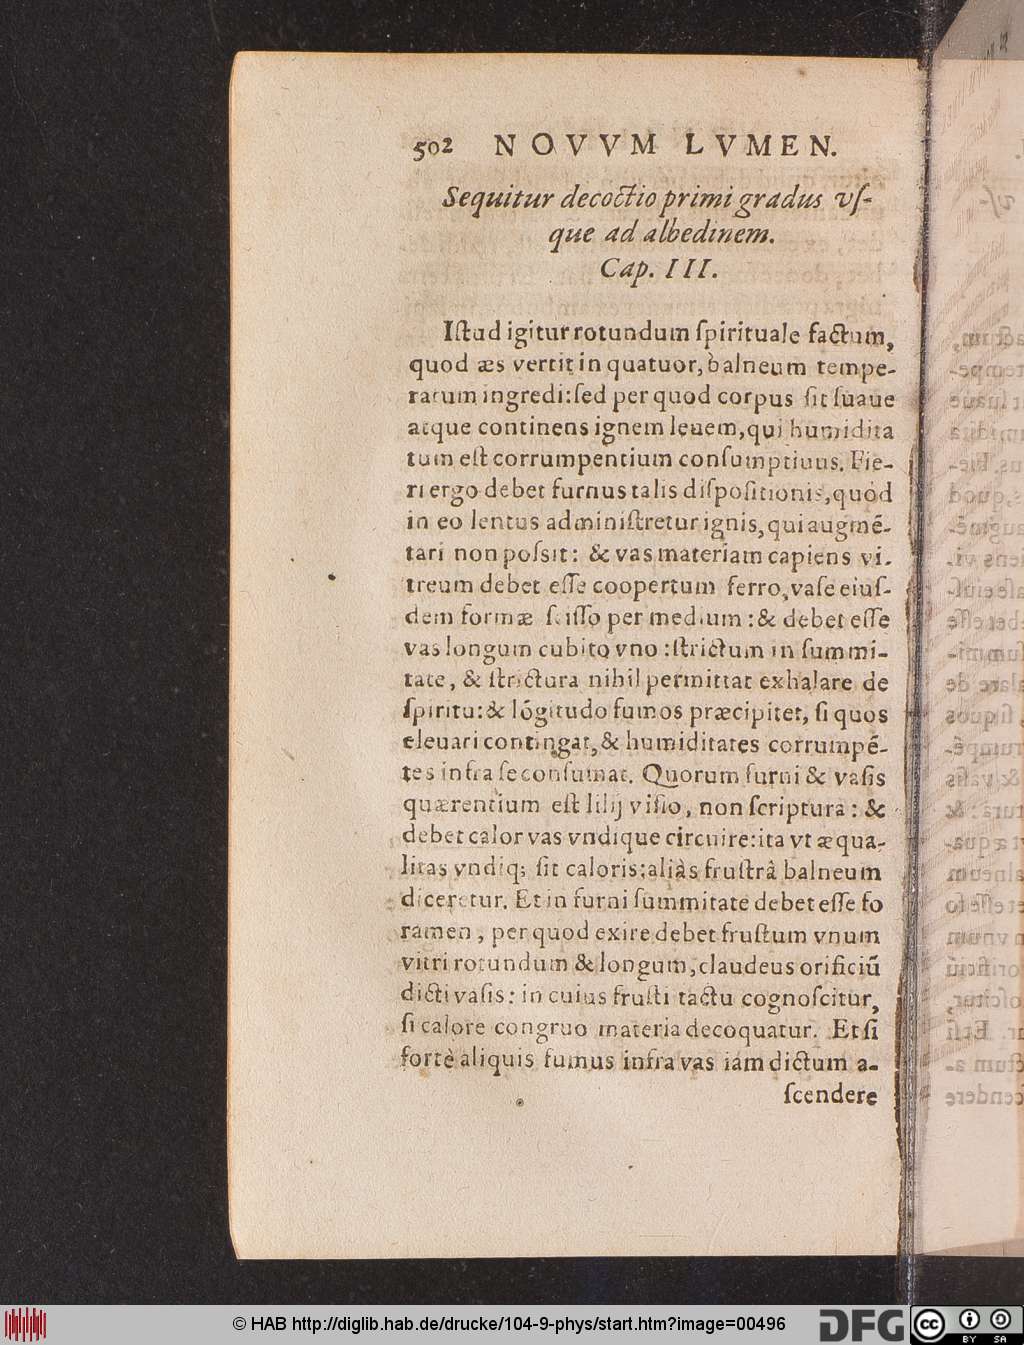 502 NOVVM LVMEN.
Sequitur decoctio primi gradus vſ-
que ad albedinem.
Cap. III.
Iſtud igitur rotundum ſpirituale factum,
quod æs vertit in quatuor, balneum tempe-
ratum ingredi: ſed per quod corpus ſit ſuaue
atque continens ignem leuem, qui humidita
tum eſt corrumpentium conſumptiuus. Fie-
ri ergo debet furnus talis diſpoſitionis, quòd
in eo lentus adminiſtretur ignis, qui augmē-
tari non poſsit: & vas materiam capiens vi-
treum debet eſſe coopertum ferro, vaſe eiuſ-
dem formæ ſciſſo per medium: & debet eſſe
vas longum cubito vno: ſtrictum in ſummi-
tate, & ſtrictura nihil permittat exhalare de
ſpiritu: & lōgitudo fumos præcipitet, ſi quos
eleuari contingat, & humiditates corrumpē-
tes infra ſe conſumat. Quorum furni & vaſis
quærentium eſt lilij viſio, non ſcriptura: &
debet calor vas vndique circuire: ita vt æqua-
litas vndiq; ſit caloris: aliàs fruſtrâ balneum
diceretur. Et in furni ſummitate debet eſſe fo
ramen, per quod exire debet fruſtum vnum
vitri rotundum & longum, claudeus orificiū
dicti vaſis: in cuius fruſti tactu cognoſcitur,
ſi calore congruo materia decoquatur. Et ſi
fortè aliquis fumus infra vas iám dictum a-
ſcendere
© HAB http://diglib.hab.de/drucke/104-9-phys/start.htm?image=00496
DFG
cc BY SA